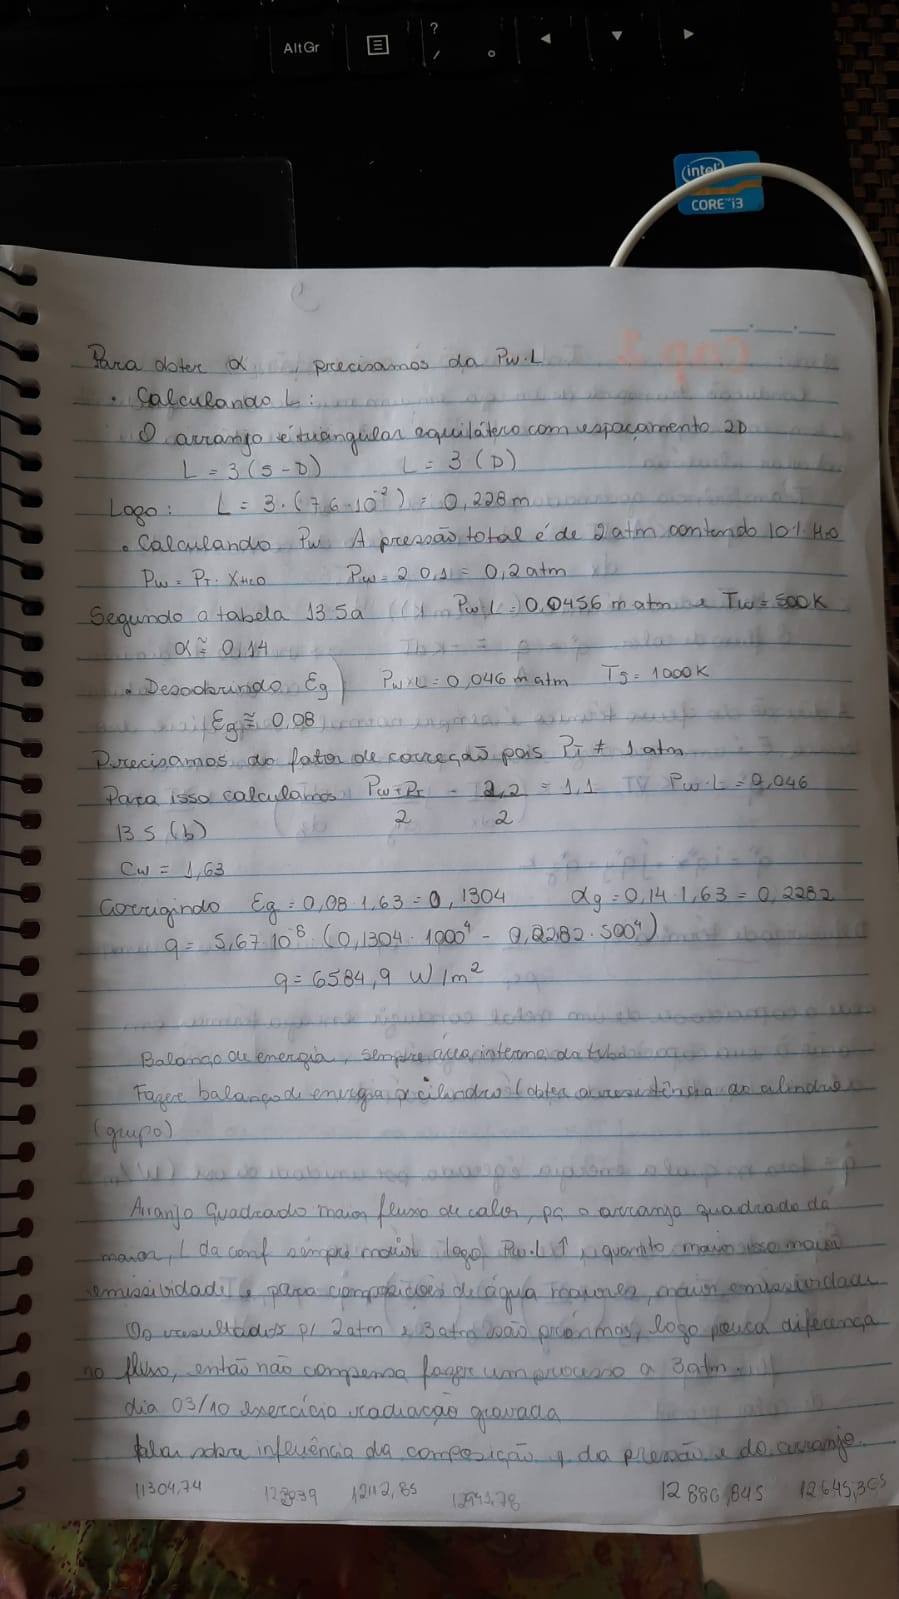 AltGr
?
/
°
intel
CORE i3
Para obter α, precisamos da Pw.L
• Calculando L:
O arranjo é triangular equilátero com espaçamento 2D
L = 3(S-D) L = 3(D)
Logo: L = 3.(7,6.10⁻²) = 0,228 m
• Calculando Pw A pressão total é de 2 atm contendo 10% H₂O
Pw = PT. XH2O Pw = 2 0,1 = 0,2 atm
Segundo a tabela 13 5a Pw.L = 0,0456 m atm e Tw = 500K
α ≅ 0,14
• Descobrindo Eg Pw×L = 0,046 m atm Tg = 1000K
Eg ≅ 0,08
Precisamos do fator de correção pois PT ≠ 1 atm
Para isso calculamos Pw+PT = 2,2 = 1,1 Pw.L = 0,046
13 5 (b) 2 2
Cw = 1,63
Corrigindo Eg = 0,08 . 1,63 = 0,1304 αg = 0,14 . 1,63 = 0,2282
q = 5,67.10⁻⁸ (0,1304 . 1000⁴ - 0,2282 . 500⁴)
q = 6584,9 W/m²
Balanço de energia, sempre área interna do tubo
Fazer balanço de energia p cilindro (obter a resistência ao cilindro
(grupo)
Arranjo Quadrado maior fluxo de calor, pq o arranjo quadrado da
maior, L da conf sempre maior logo Pw.L ↑, quanto maior isso maior
emissividade e para composições de água maiores, maior emissividade
Os resultados p/ 2atm e 3atm são próximos, logo pouca diferença
no fluxo, então não compensa fazer um processo a 3atm.
dia 03/10 exercício radiação gravada
falar sobre influência da composição, da pressão e do arranjo.
11304,74 12112,85 12886,845 12645,365